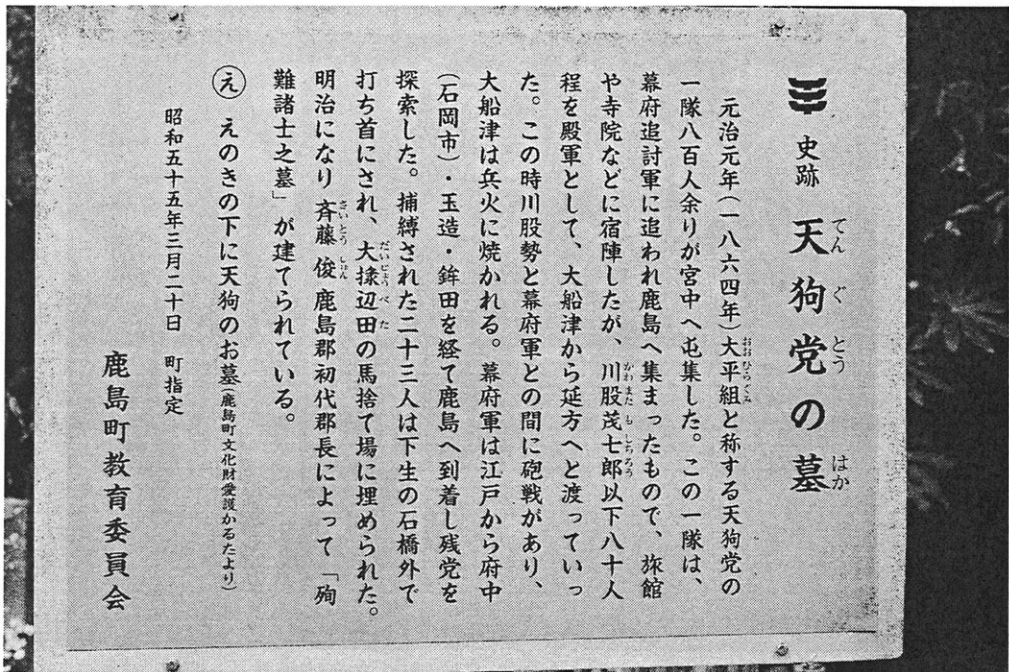 史跡 天狗党の墓
てんぐとう はか
元治元年(一八六四年)大平組と称する天狗党の
おおひらぐみ
一隊八百人余りが宮中へ屯集した。この一隊は、
幕府追討軍に追われ鹿島へ集まったもので、旅館
や寺院などに宿陣したが、川股茂七郎以下八十人
かわまた もしちろう
程を殿軍として、大船津から延方へと渡っていっ
た。この時川股勢と幕府軍との間に砲戦があり、
大船津は兵火に焼かれる。幕府軍は江戸から府中
(石岡市)・玉造・鉾田を経て鹿島へ到着し残党を
探索した。捕縛された二十三人は下生の石橋外で
打ち首にされ、大掾辺田の馬捨て場に埋められた。
だいじょうべた
明治になり斉藤俊鹿島郡初代郡長によって「殉
さいとう しゅん
難諸士之墓」が建てられている。
え えのきの下に天狗のお墓(鹿島町文化財愛護かるたより)
昭和五十五年三月二十日 町指定
鹿島町教育委員会